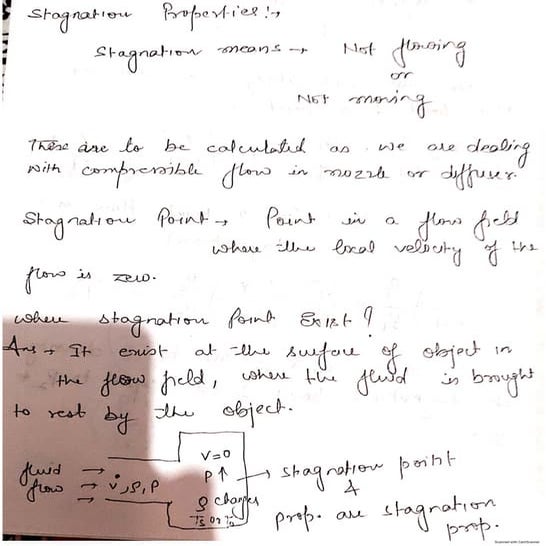 Stagnation Properties :→
Stagnation means → Not flowing
or
Not moving
These are to be calculated as we are dealing
with compressible flow in nozzle or diffuser.
Stagnation Point → Point in a flow field
where the local velocity of the
flow is zero.
where stagnation Point Exist ?
Ans → It exist at the surface of object in
the flow field, where the fluid is brought
to rest by the object.
fluid →
flow → V, ρ, P
→
V=0
P ↑
ρ changes
→ stagnation point
&
prop. are stagnation
prop.
Scanned with CamScanner